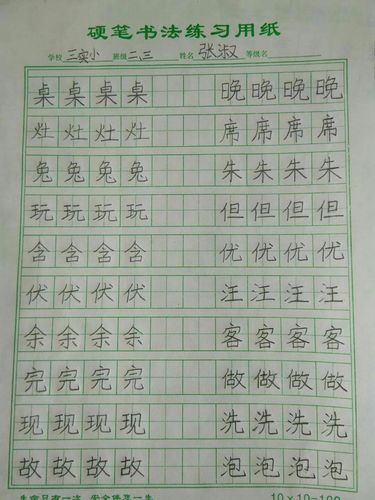 硬笔书法练习用纸
学校 三实小 班级 二、三 姓名 张淑 等级名
桌桌桌桌 晚晚晚晚
灶灶灶灶 席席席席
兔兔兔兔 朱朱朱朱
玩玩玩玩 但但但但
含含含含 优优优优
伏伏伏伏 汪汪汪汪
余余余余 客客客客
完完完完 做做做做
现现现现 洗洗洗洗
故故故故 泡泡泡泡
10×10=100